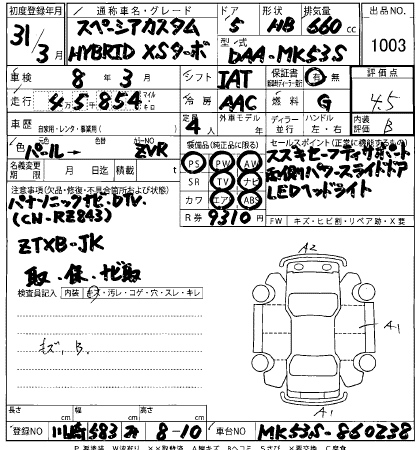 初度登録年月 通称車名・グレード ドア 形状 排気量 出品No.
31年 3月 スペーシアカスタム HYBRID XSターボ 5 HB 660cc
型式 DAA-MK53S 1003
車検 8年 3月 シフト IAT 保証書 有 無 評価点
走行 45千854 マイル キロ 冷房 AAC 燃料 G 4.5
車歴 自家用・レンタ・事業用( ) 定員 4人 外車モデル年 ディーラー 並行 ハンドル 左・右 内装評価 B
色 パール 色替 カラーNO ZVR 装備品(純正品に限る) セールスポイント(正常に機能するもの)
名義変更期限 月 日迄 積載 t PS PW AW
スズキセーフティサポート
両側パワースライドドア
LEDヘッドライト
注意事項(欠品・修復・不具合箇所および状態) SR TV ナビ
パナソニックナビ・DTV. カワ エア ABS
(CN-RZ843) R券 9310円 FW キズ・ヒビ割・リペア跡・X要
ZTXB-JK
取.保.ナビ取
検査員記入 内装 キズ・汚レ・コゲ・穴・スレ・キレ
キズ、B.
A2
A1
A1
長さ cm 幅 cm 高さ cm
登録NO 川崎 583 8-10 車台NO MK53S-860238